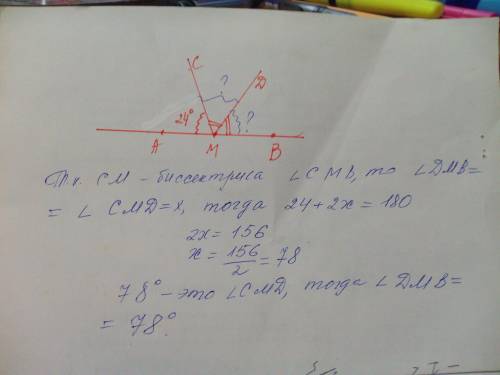 C
?
D
24°
?
A
M
B
Т.к. CM - биссектриса ∠CMB, то ∠DMB=
= ∠ CMD=x, тогда 24+2x=180
2x=156
x=156/2=78
78° - это ∠CMD, тогда ∠DMB=
= 78°.